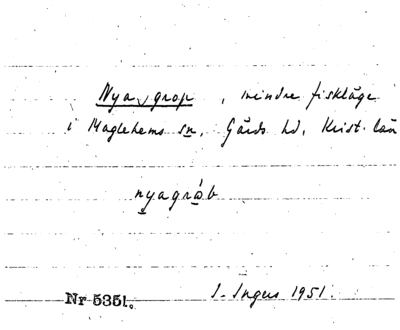 Nya grop, mindre fiskläge
i Maglehems sn, Gärds hd, Krist. län
nyagrob
Nr 5351.
I. Ingers 1951.